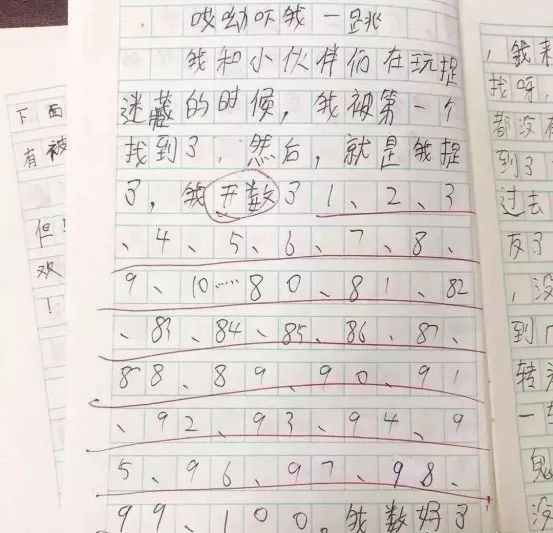 哎呦吓我一跳
我和小伙伴们在玩捉
迷藏的时候，我被第一个
找到了，然后，就是我捉
了，我开数了1、2、3
、4、5、6、7、8、
9、10……80、81、82
、83、84、85、86、87、
88、89、90、91
、92、93、94、9
5、96、97、98、
99、100，我数好了
下面
有被
但！
欢
！
，我来
找呀，
都没有
到了
过去
反了
，没
到
转头
一转
鬼
没